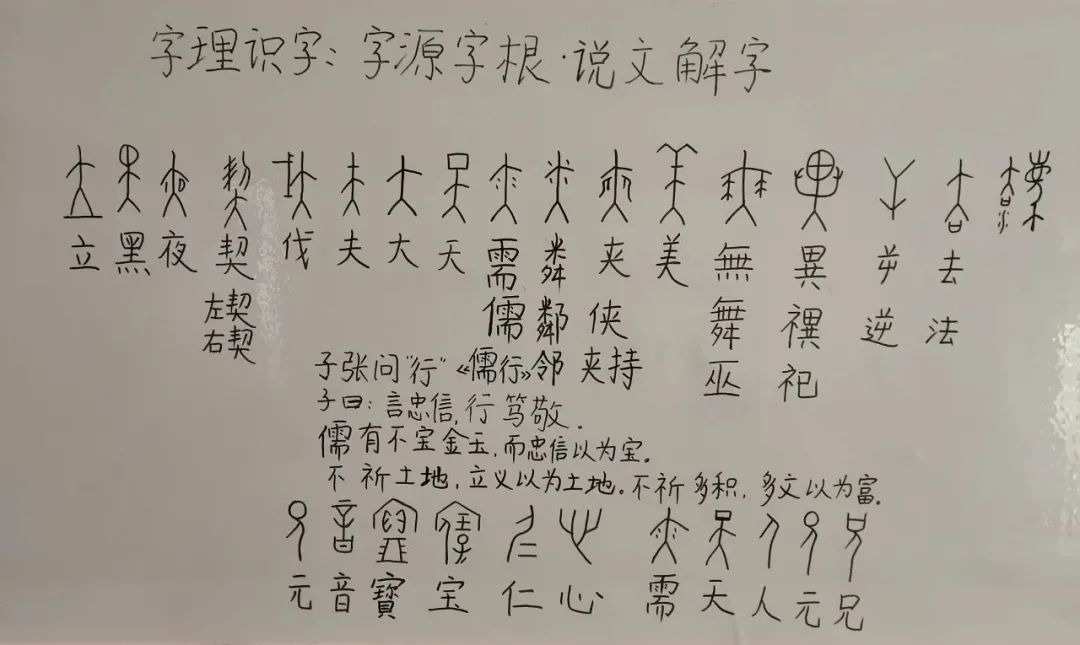 字理识字：字源字根·说文解字
立 黑 夜 契 伐 夫 大 天 需 粦 夹 美 無 異 屰 去
左契 儒 鄰 侠 舞 禩 逆 法
右契 子张问“行”《儒行》邻 夹持 巫 祀
子曰：言忠信，行笃敬．
儒有不宝金玉，而忠信以为宝。
不祈土地，立义以为土地。不祈多积，多文以为富。
元 音 寶 宝 仁 心 需 天 人 元 兄